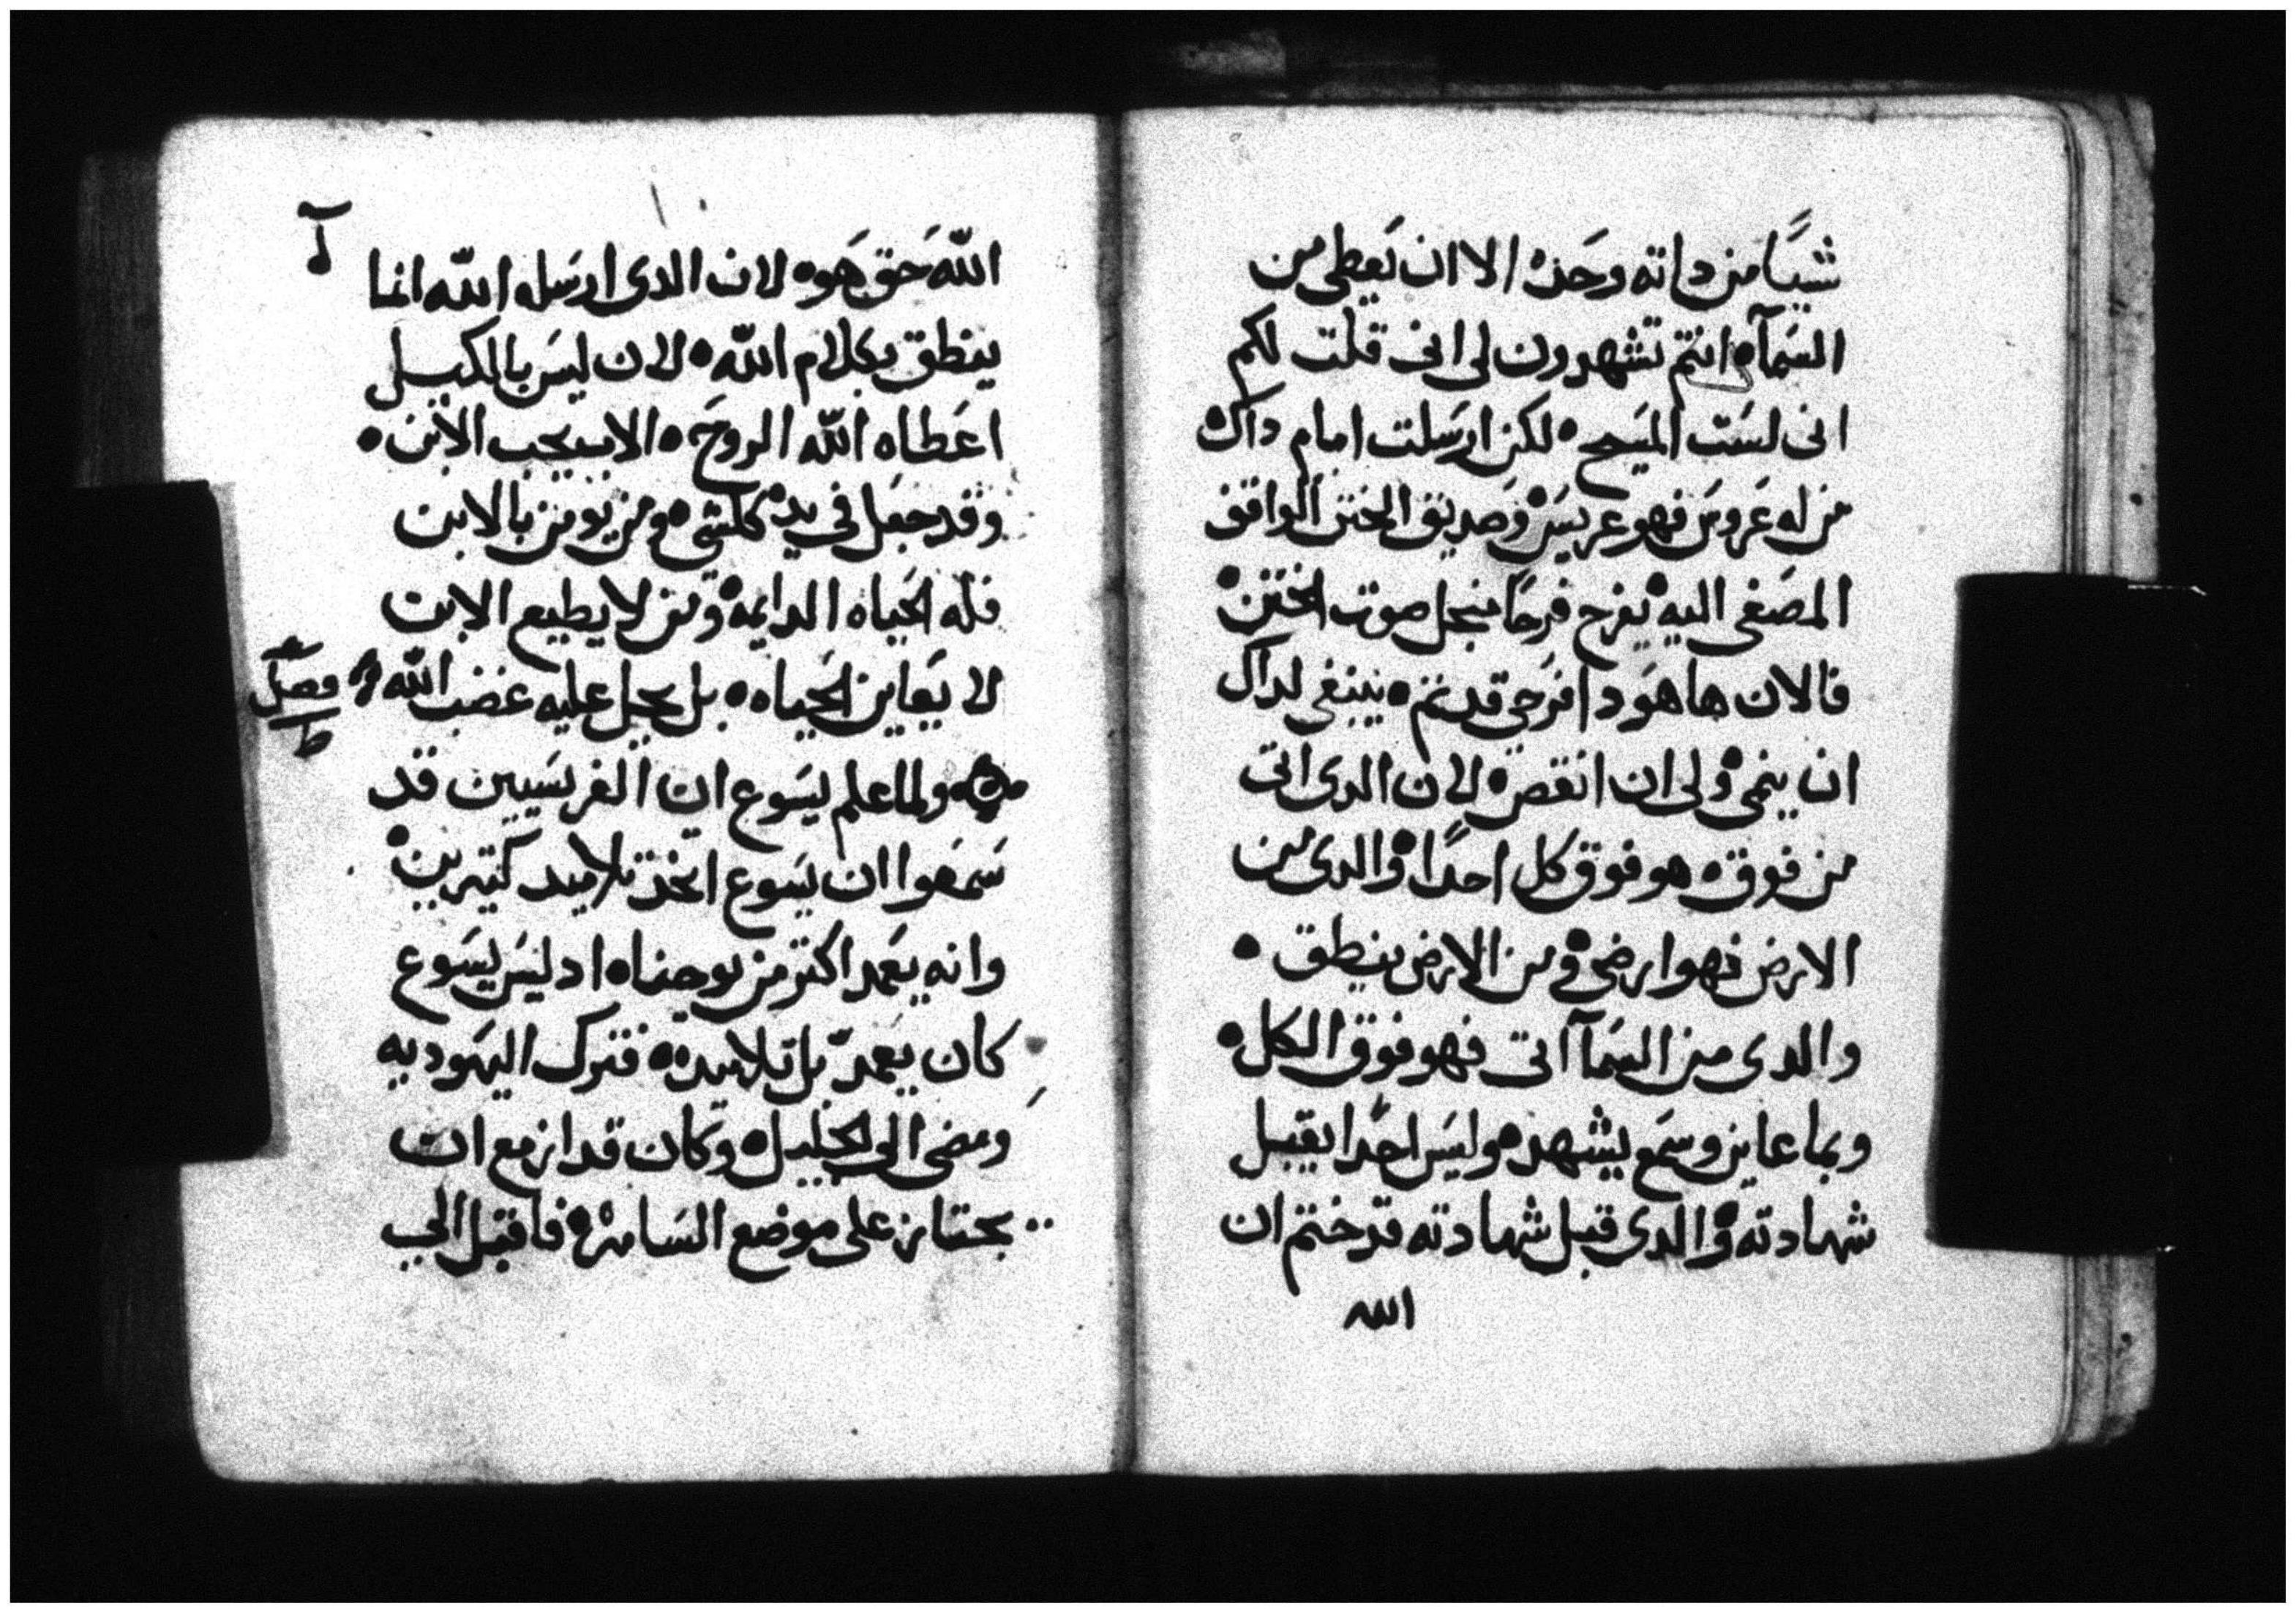 شيًا من داته وحده الا ان يَعطى من
السَمآ٥ انتم تشهدون لى انى قلت لكم
انى لسَت المسَيح٥ لكن ارسَلت امام داك
من له عَروسَ فهو عريسَ٥ وصَديق الختن الواقف
المصَغى اليه يفرح فرحًا منجل صوت الختن٥
فالان هاهوَدا فرَحى قد تم٥ ينبغى لداك
ان ينمى٥ ولى ان انقص٥ لان الدى اتى
من فوق٥ هو فوق كل احدًا٥ والدى من
الارض فهو ارضى٥ ومن الارض ينطق٥
والدى من السَمآ اتى فهو فوق الكل٥
وبما عاين وسمَع يشهد٥ وليسَ احدًا يقبل
شهادته٥ والدى قبل شهادته قد ختم ان
الله
اللّه حَق هَو٥ لان الدى ارسَله اللّه انما
ينطق بكلام اللّه٥ لان ليسَ بالمكييل
اعَطاه اللّه الروحَ٥ الاب يحب الابن٥
وقد جعَل فى يده كلشى٥ ومن يومن بالابن
فله الحَياه الدايمه٥ ومن لا يطيع الابن
لا يَعاين الحَياه٥ بل يحل عليه غضب اللّه
فصل
ط
ولما علم يسَوع ان الفريسَيين قد
سَمعَوا ان يسَوع اتخد تلاميد كتيرين٥
وانه يعَمد اكتر من يوحنا٥ اد ليسَ يسَوع
كان يعمدّ بل تلاميده٥ فترك اليهَوديه
ومضى الى الجليل٥ وكان قد ازمع ان
يجتاز على موضع السَامره٥ فاقبل الى